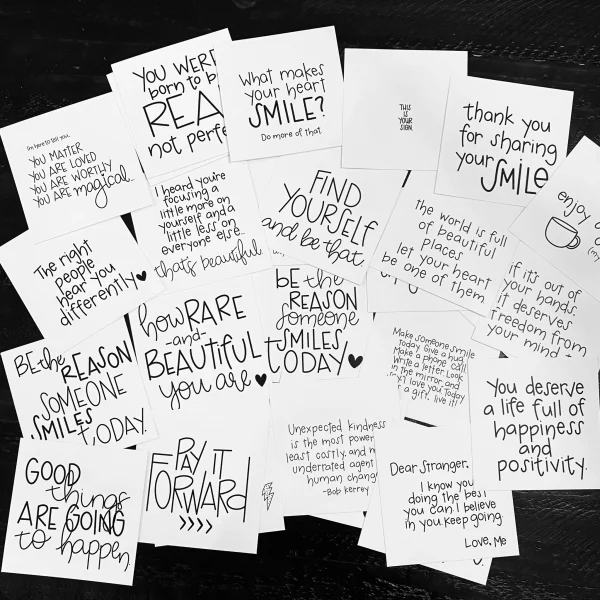 I'm here to tell you,
YOU MATTER
YOU ARE LOVED
YOU ARE WORTHY
YOU ARE magical.
YOU WERE
born to b
REA
not perfe
What makes
your heart
SMILE?
Do more of that.
THIS
IS
YOUR
SIGN.
thank you
for sharing
your SMILE
enjoy
The right
people
hear you
differently
I heard you're
focusing a
little more on
yourself and a
little less on
everyone else...
that's beautiful.
FIND
YOURSELF
and be that.
The world is full
of beautiful
places
let your heart
be one of them.
if it's out of
your hands,
it deserves
freedom from
your mind
BE the REASON
SOMEONE
SMILES
TODAY.
how RARE
-and-
BEAUTIFUL
you are
BE the
REASON
someone
SMILES
TODAY
Make someone smile
today. Give a hug.
Make a phone call.
Write a letter. Look
in the mirror and
I love you. Today
a gift, live it!
you deserve
a life full of
happiness
and
positivity.
GOOD
things
ARE GOING
to happen.
PAY IT
FORWARD
>>>>
Unexpected kindness
is the most power
least costly, and m
underrated agent
human change
-Bob Kerrey
Dear Stranger,
I know you
doing the best
you can. I believe
in you. keep going
Love, Me